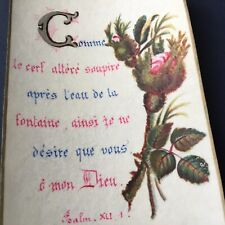 Comme
le cerf altéré soupire
après l'eau de la
fontaine, ainsi je ne
désire que vous
ô mon Dieu.
Psalm. XLI, 1.